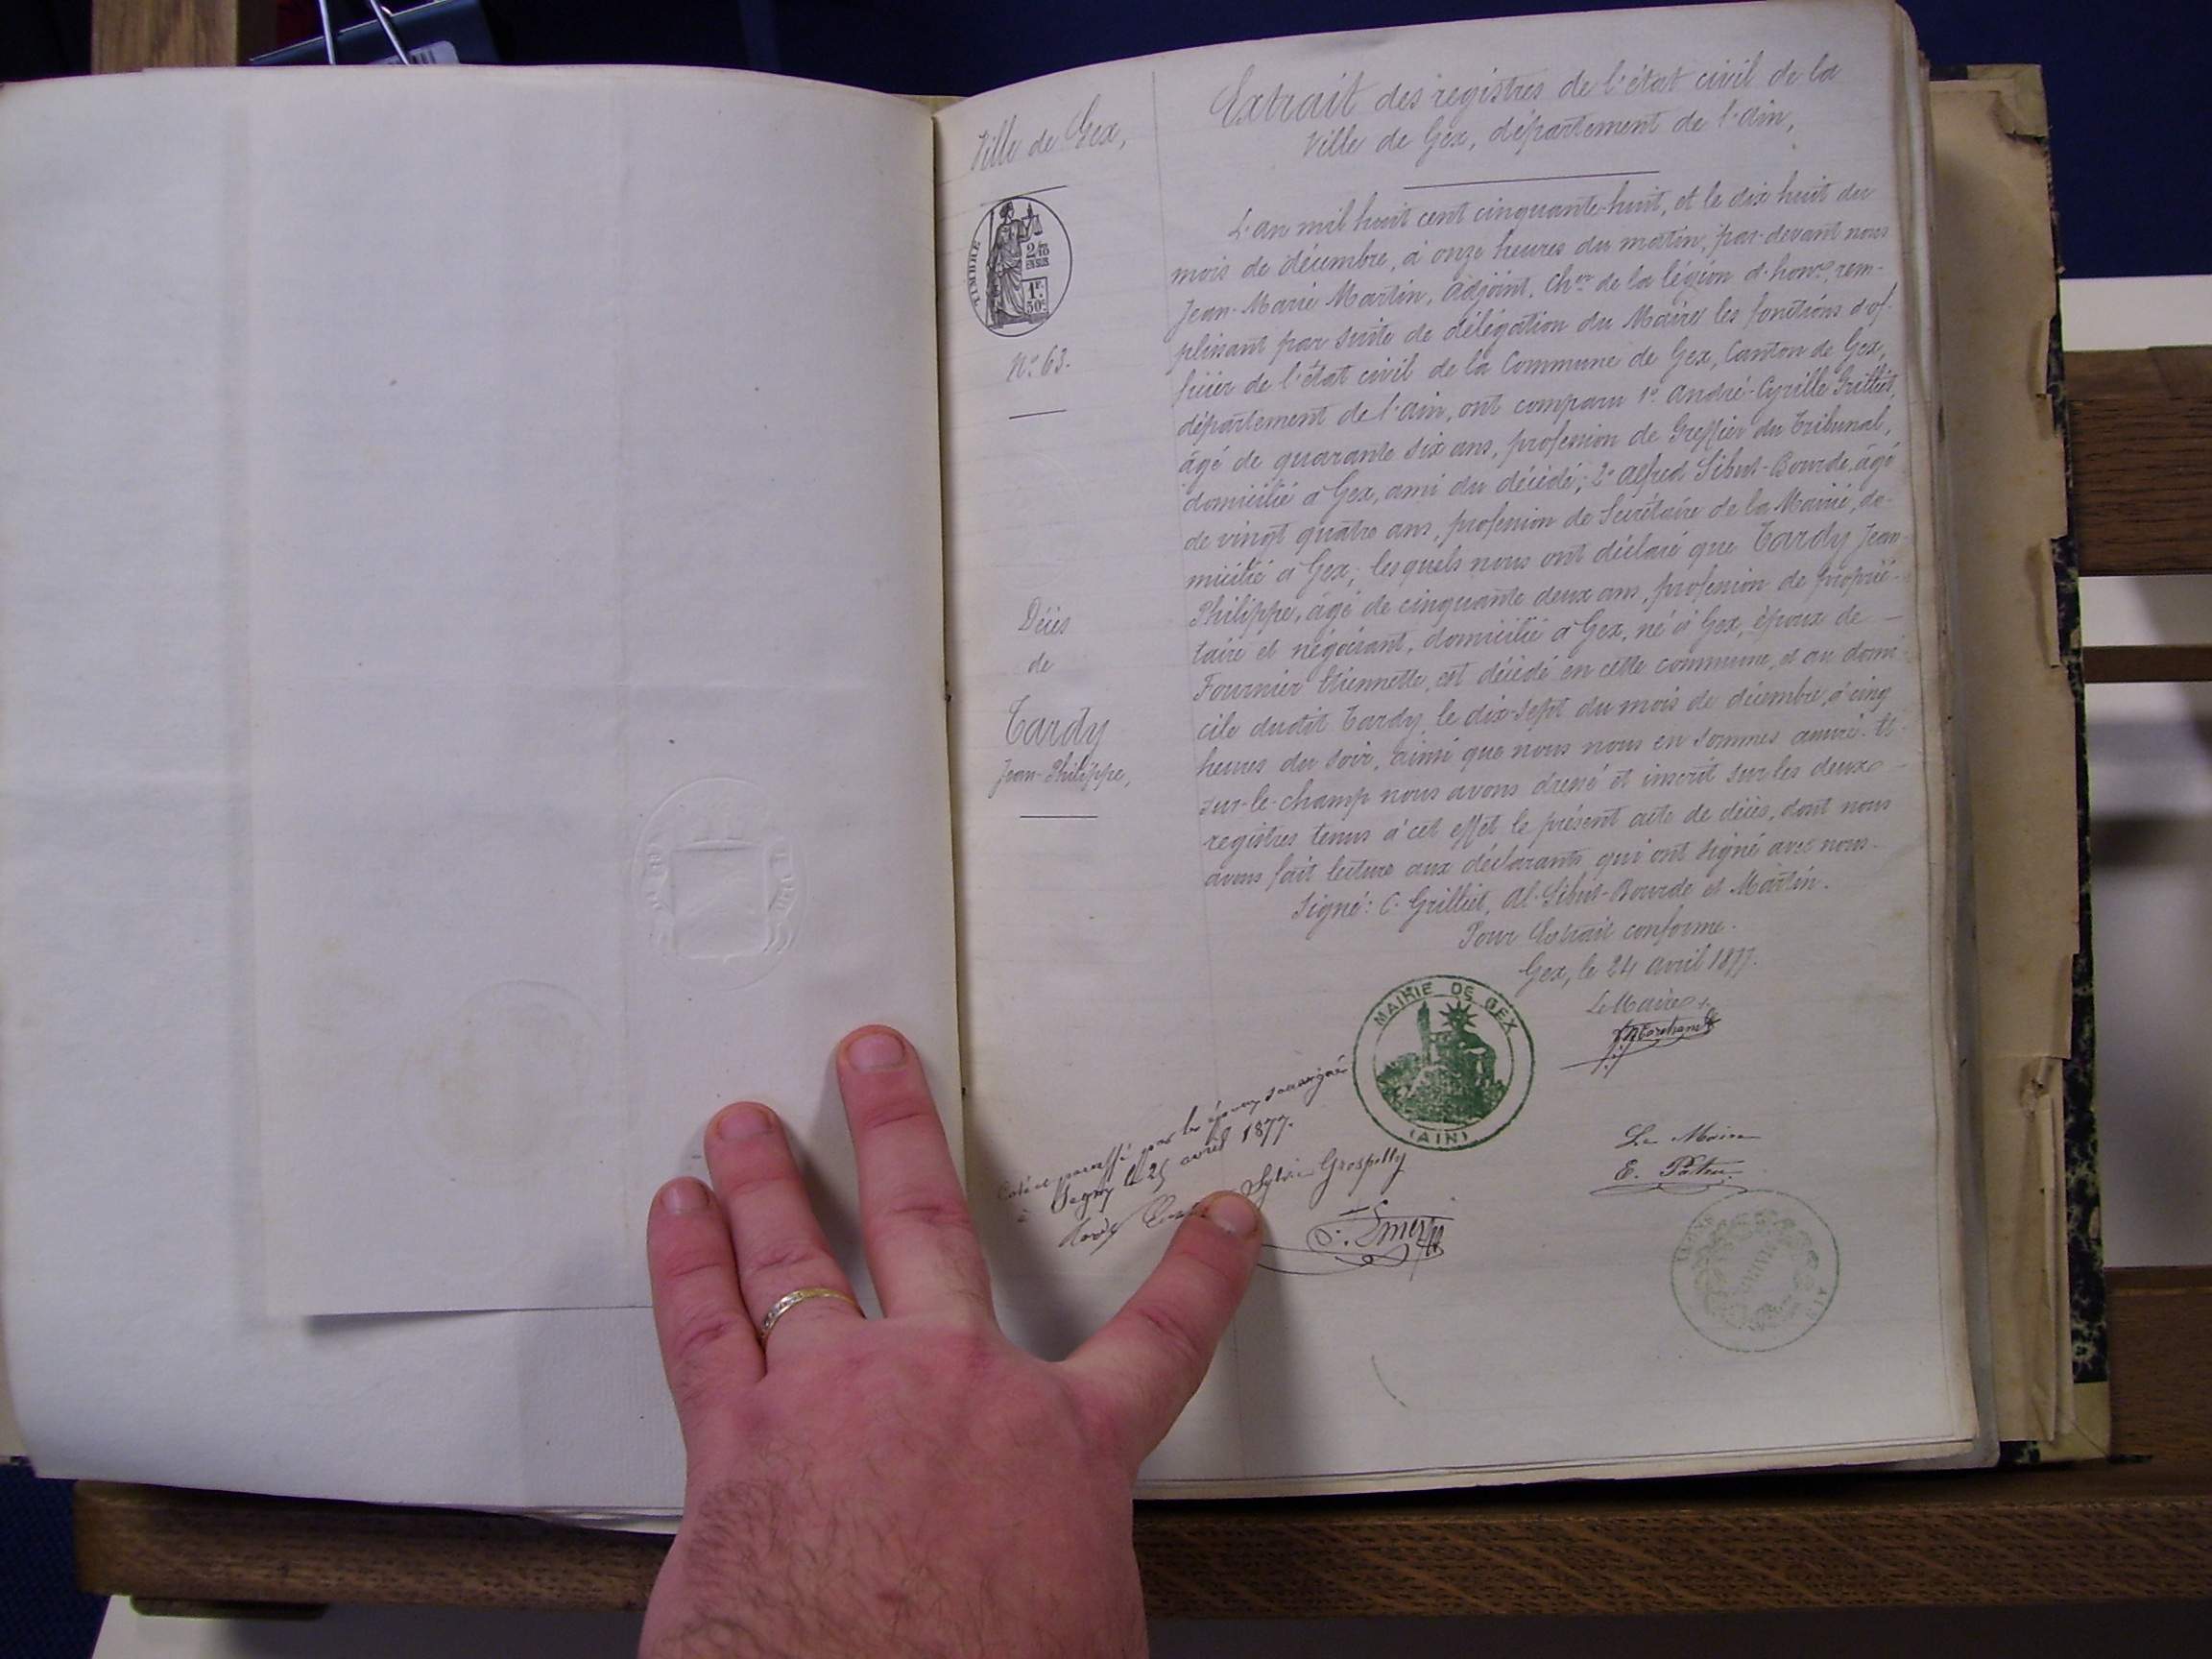 Ville de Gex,
TIMBRE
2/10
EN SUS
1F.
50c
N.º 63.
Décès
de
Tardy
Jean-Philippe,
Extrait des registres de l'état civil de la
Ville de Gex, département de l'Ain,
L'an mil huit cent cinquante-huit, et le dix huit du
mois de décembre, à onze heures du matin, par-devant nous
Jean-Marie Martin, adjoint, Ch.er de la légion d'hon.r, rem-
plissant par suite de délégation du Maire les fonctions d'of-
ficier de l'état civil de la Commune de Gex, Canton de Gex,
département de l'Ain, ont comparu 1.º André-Cyrille Grilliet,
âgé de quarante six ans, profession de Greffier du Tribunal,
domicilié à Gex, ami du décédé; 2.º Alfred Sibut-Bourde, âgé
de vingt quatre ans, profession de Secrétaire de la Mairie, do-
micilié à Gex; lesquels nous ont déclaré que Tardy Jean-
Philippe, âgé de cinquante deux ans, profession de proprié-
taire et négociant, domicilié à Gex, né à Gex, époux de
Fournier Etiennette, est décédé en cette commune, et au domi-
cile dudit Tardy, le dix-sept du mois de décembre, à cinq
heures du soir, ainsi que nous nous en sommes assuré. Et
sur-le-champ nous avons dressé et inscrit sur les deux
registres tenus à cet effet le présent acte de décès, dont nous
avons fait lecture aux déclarants qui ont signé avec nous.
Signé: C. Grilliet, Al. Sibut-Bourde et Martin.
Pour Extrait conforme.
Gex, le 24 avril 1877.
Le Maire
MAIRIE DE GEX
(AIN)
Coté et paraffé par les époux soussignés
à Segny le 25 avril 1877.
Sylvie Grospelly
Le Maire
MAIRIE
AIN